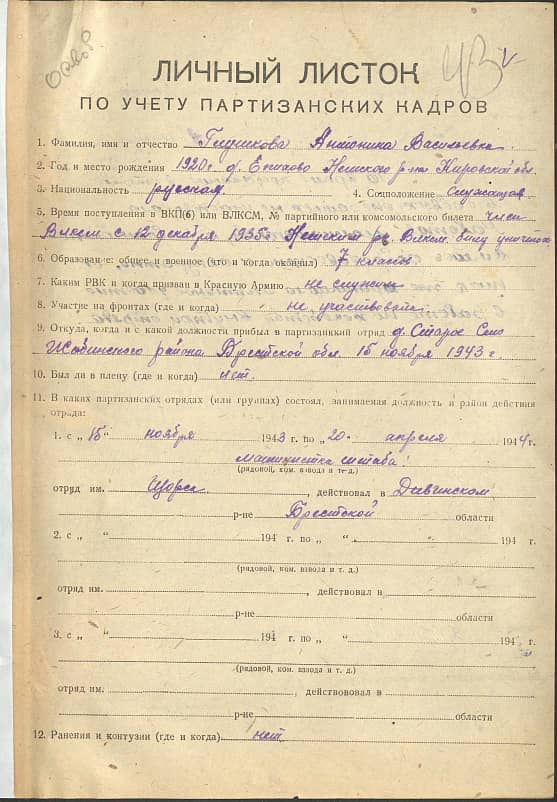 ЛИЧНЫЙ ЛИСТОК
ПО УЧЕТУ ПАРТИЗАНСКИХ КАДРОВ
1. Фамилия, имя и отчество Глушкова Антонина Васильевна
2. Год и место рождения 1920 г. д. Немского р-на Кировской обл.
3. Национальность русская 4. Сосположение Служащая
5. Время поступления в ВКП(б) или ВЛКСМ, № партийного или комсомольского билета член
Влксм с 12 декабря 1935 г. Немским Рк Влксм. билет
6. Образование: общее и военное (что и когда окончил) 7 классов
7. Каким РВК и когда призван в Красную Армию не служила
8. Участие на фронтах (где и когда) не участвовала
9. Откуда, когда и с какой должности прибыл в партизанкий отряд д. Старое Село
Жабинского района Брестской обл. 15 ноября 1943 г.
10. Был ли в плену (где и когда) нет.
11. В каких партизанских отрядах (или группах) состоял, занимаемая должность и район действия
отряда:
1. с „15" ноября 1943 г. по „20" апреля 1944 г.
машинистка штаба.
(рядовой, ком. взвода и т. д.)
отряд им. Щорса, действовал в Дивинском
р-не Брестской области
2. с „ " 194 г. по „ " 194 г.
(рядовой, ком. взвода и т. д.)
отряд им. , действовал в
р-не области
3. с „ " 194 г. по „ " 194 г.
(рядовой, ком. взвода и т. д.)
отряд им. , действововал в
р-не области
12. Ранения и контузии (где и когда) нет